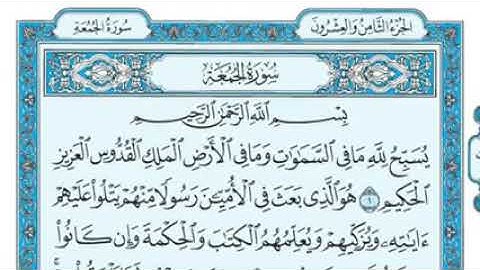 الجزء الثامن والعشرون
سورة الجمعة
سُورَةُ الْجُمُعَةِ
بِسْمِ اللَّهِ الرَّحْمَٰنِ الرَّحِيمِ
يُسَبِّحُ لِلَّهِ مَا فِي السَّمَٰوَٰتِ وَمَا فِي الْأَرْضِ الْمَلِكِ الْقُدُّوسِ الْعَزِيزِ
الْحَكِيمِ ١ هُوَ الَّذِي بَعَثَ فِي الْأُمِّيِّـۧنَ رَسُولًا مِّنْهُمْ يَتْلُوا۟ عَلَيْهِمْ
ءَايَٰتِهِۦ وَيُزَكِّيهِمْ وَيُعَلِّمُهُمُ الْكِتَٰبَ وَالْحِكْمَةَ وَإِن كَانُوا۟